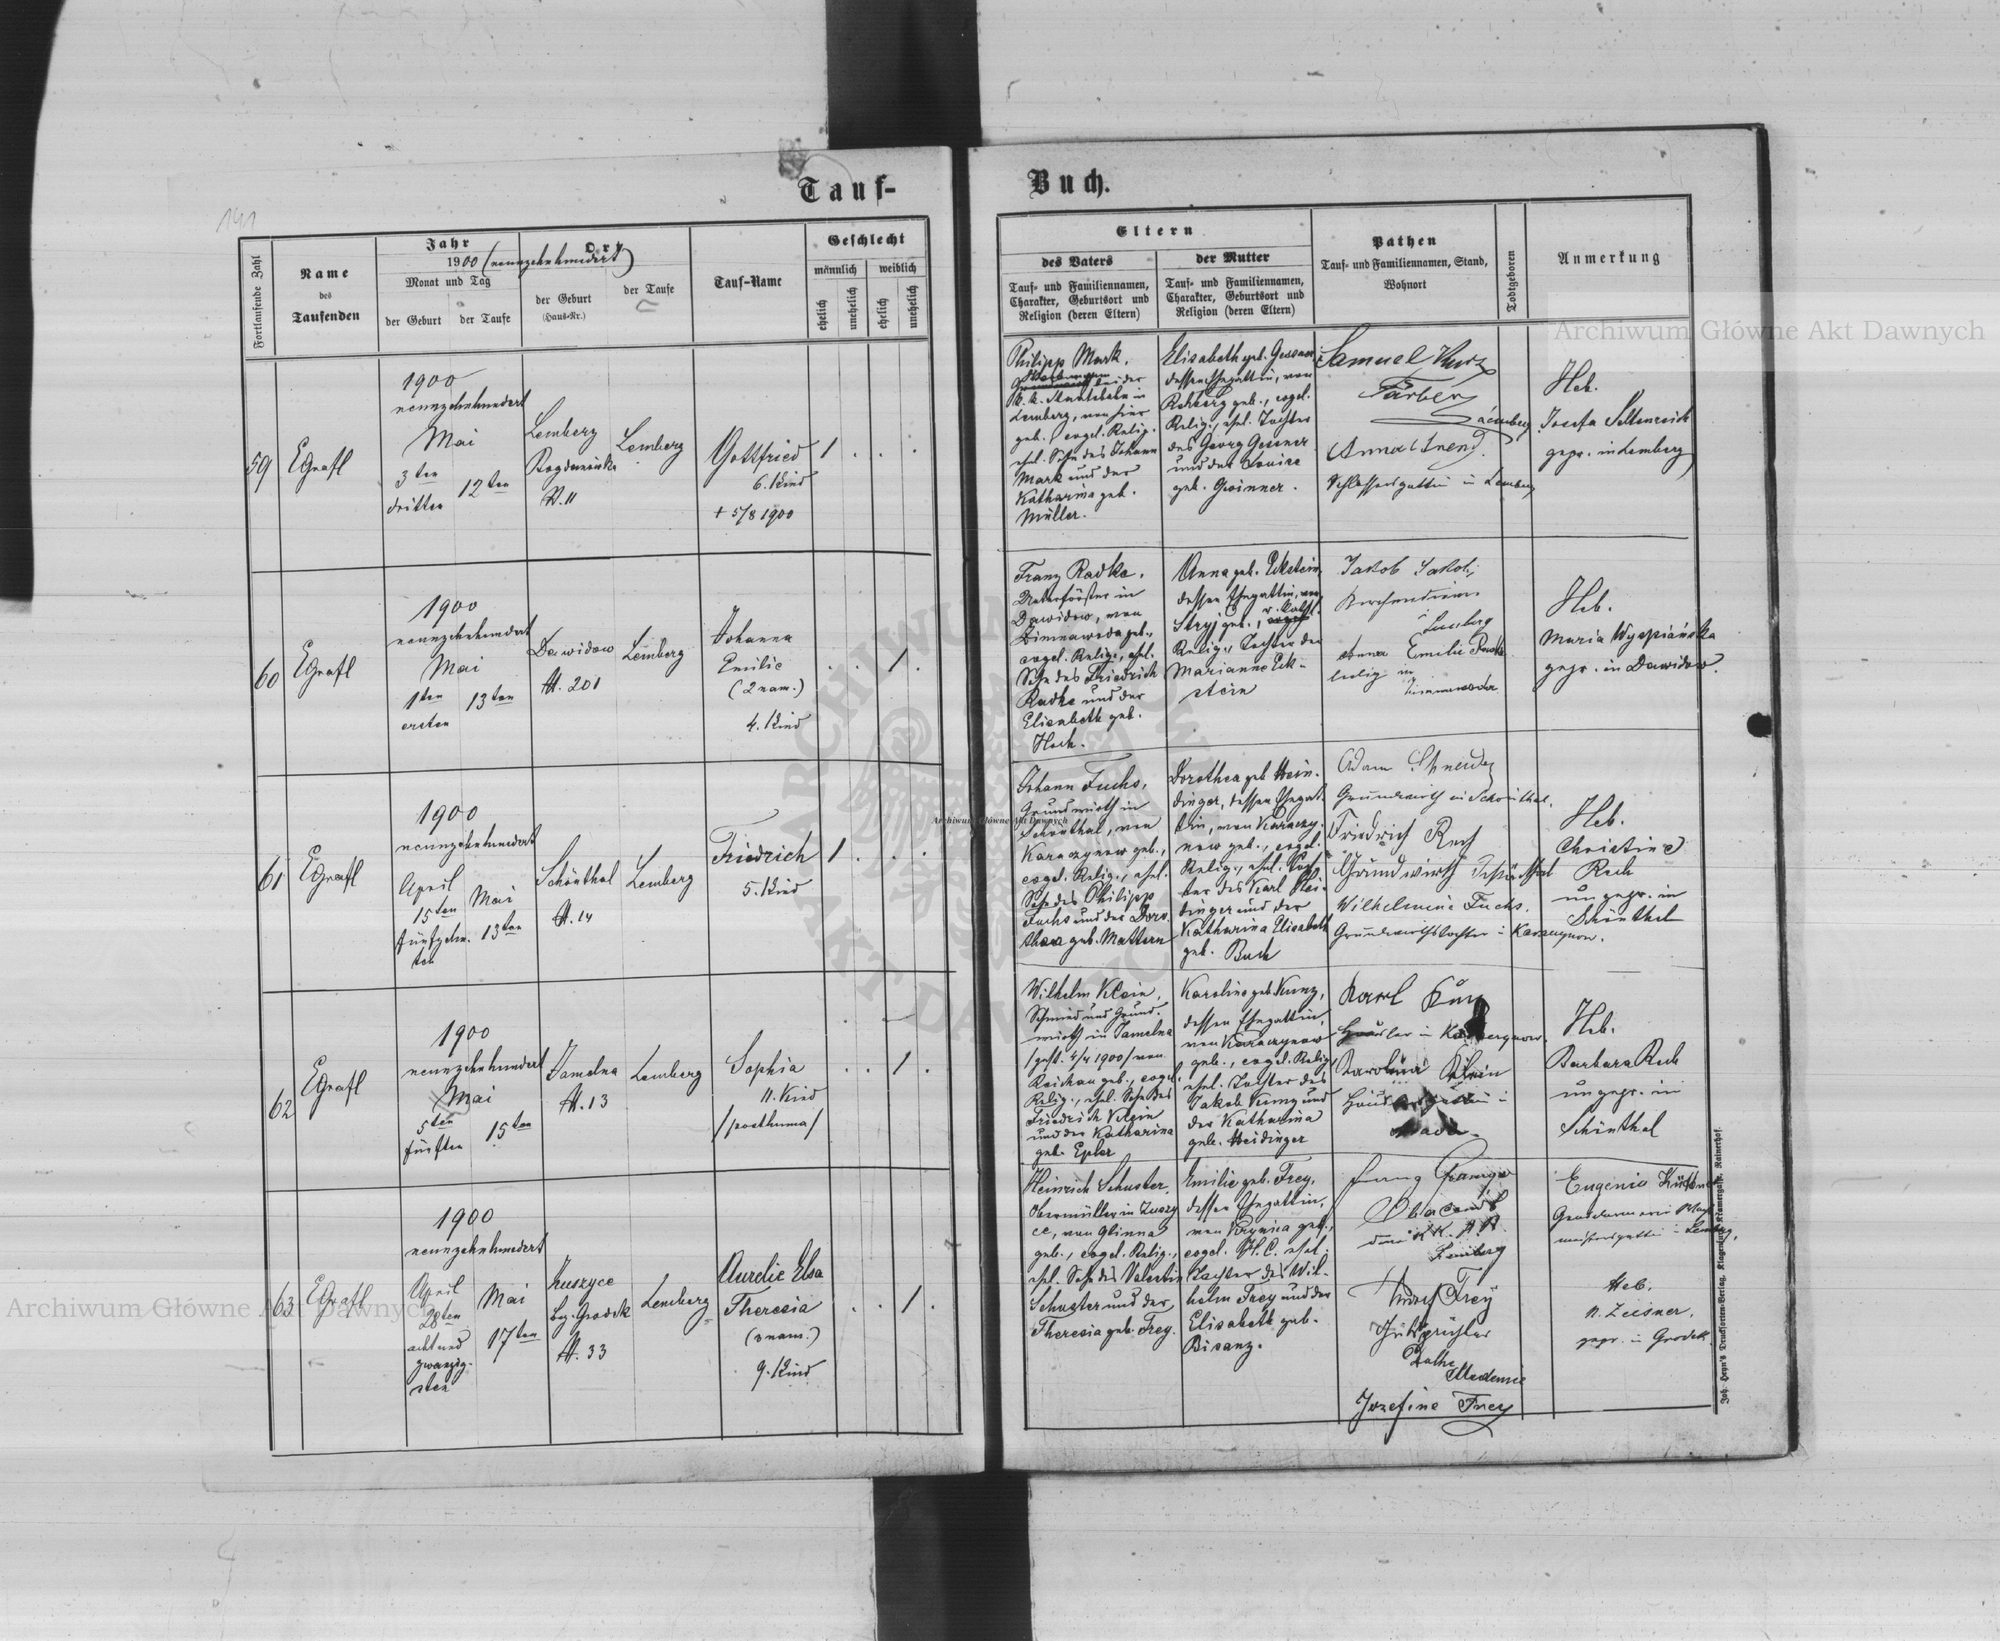 191
Tauf-
Buch.
Fortlaufende Zahl
Name
des
Taufenden
Jahr
1900 (neunzehnhundert)
Monat und Tag
der Geburt
der Taufe
Ort
der Geburt
(Haus-Nr.)
der Taufe
Tauf-Name
Geschlecht
männlich
weiblich
ehelich
unehelich
ehelich
unehelich
Eltern
des Vaters
Tauf- und Familiennamen,
Charakter, Geburtsort und
Religion (deren Eltern)
der Mutter
Tauf- und Familiennamen,
Charakter, Geburtsort und
Religion (deren Eltern)
Pathen
Tauf- und Familiennamen, Stand,
Wohnort
Todtgeboren
Anmerkung
Archiwum Główne Akt Dawnych
59
EGrafl
1900
neunzehnhundert
Mai
3ten
dritten
12ten
Lemberg
N. 11
Lemberg
Gottfried
6. Kind
+ 5/8 1900
1 . . .
Philipp Mark,
bei der
k. k. Staatsbahn in
Lemberg, von hier
geb., evgel. Relig.,
ehel. Sohn des Johann
Mark und der
Katharina geb.
Müller.
Elisabeth geb. Gessner
dessen Ehegattin, von
Rehberg geb., evgel.
Relig., ehel. Tochter
des Georg Gessner
und der Louise
geb. Gwinner.
Samuel Kurz
Färber
Lemberg
Anna
Schlossersgattin in Lemberg
Heb.
Josefa
gepr. in Lemberg
60
EGrafl
1900
neunzehnhundert
Mai
1ten
ersten
13ten
Dawidow
N. 201
Lemberg
Johanna
Emilie
(2 nam.)
4. Kind
. . 1 .
Franz Radke,
Unterförster in
Dawidow, von
Zimnawoda geb.,
evgel. Relig., ehel.
Sohn des Friedrich
Radke und der
Elisabeth geb.
Hoch.
Anna geb. Eckstein,
dessen Ehegattin, von
Stryj geb., r. kathl.
Relig., Tochter der
Marianne Eck-
stein
Jakob Jakobi
Kirchendiener
Lemberg
Emilie Radke
ledig in
Zimnawoda
Heb.
Maria Wyspiańska
gepr. in Dawidow.
61
EGrafl
1900
neunzehnhundert
April
15ten
fünfzehn-
ten
Mai
13ten
Schönthal
N. 14
Lemberg
Friedrich
5. Kind
1 . . .
Johann Fuchs,
Grundwirth in
Schönthal, von
Karaczynow geb.,
evgel. Relig., ehel.
Sohn des Philipp
Fuchs und der Doro-
thea geb. Mattern
Dorothea geb. Hein-
dinger, dessen Ehegat-
tin, von Karaczy-
now geb., evgel.
Relig., ehel. Toch-
ter des Karl Hei-
dinger und der
Katharina Elisabeth
geb. Buch
Adam Schneider
Grundwirth in Schönthal.
Friedrich Rech
Grundwirth
Wilhelmine Fuchs.
Grundwirthstochter in Karaczynow.
Heb.
Christine
Rech
ungepr. in
Schönthal
62
EGrafl
1900
neunzehnhundert
Mai
5ten
fünften
15ten
Jamelna
N. 13
Lemberg
Sophia
11. Kind
/posthuma/
. . 1 .
Wilhelm Klein,
Schmied und Grund-
wirth in Jamelna
/gest. 4/4 1900/ von
Reichau geb., evgel.
Relig., ehel. Sohn des
Friedrich Klein
und der Katharina
geb. Epler
Karoline geb. Kunz,
dessen Ehegattin,
von Karaczynow
geb., evgel. Relig.,
ehel. Tochter des
Jakob Kunz und
der Katharina
geb. Heidinger
Karl
Häusler in
Karolina Klein
Heb.
Barbara Rech
ungepr. in
Schönthal
63
EGrafl
1900
neunzehnhundert
April
28ten
acht und
zwanzig-
sten
Mai
17ten
Kuszyce
bez. Grodek
N. 33
Lemberg
Aurelie Elsa
Theresia
(3 nam.)
9. Kind
. . 1 .
Heinrich Schuster,
Obermüller in Kuszy-
ce, von Glinna
geb., evgel. Relig.,
ehel. Sohn des Valentin
Schuster und der
Theresia geb. Frey.
Emilie geb. Frey,
dessen Ehegattin,
von Krynica geb.,
evgel. H. C. ehel.
Tochter des Wil-
helm Frey und der
Elisabeth geb.
Bisanz.
Lemberg
Frey
Josefine Frey
Eugenie
Lemberg,
Heb.
N. Zeisner,
gepr. in Grodek.
Joh. Heyn's Drucksorten-Verlag, Klagenfurt, Kramergasse, Rainerhof.
Archiwum Główne Akt Dawnych
Archiwum Główne Akt Dawnych